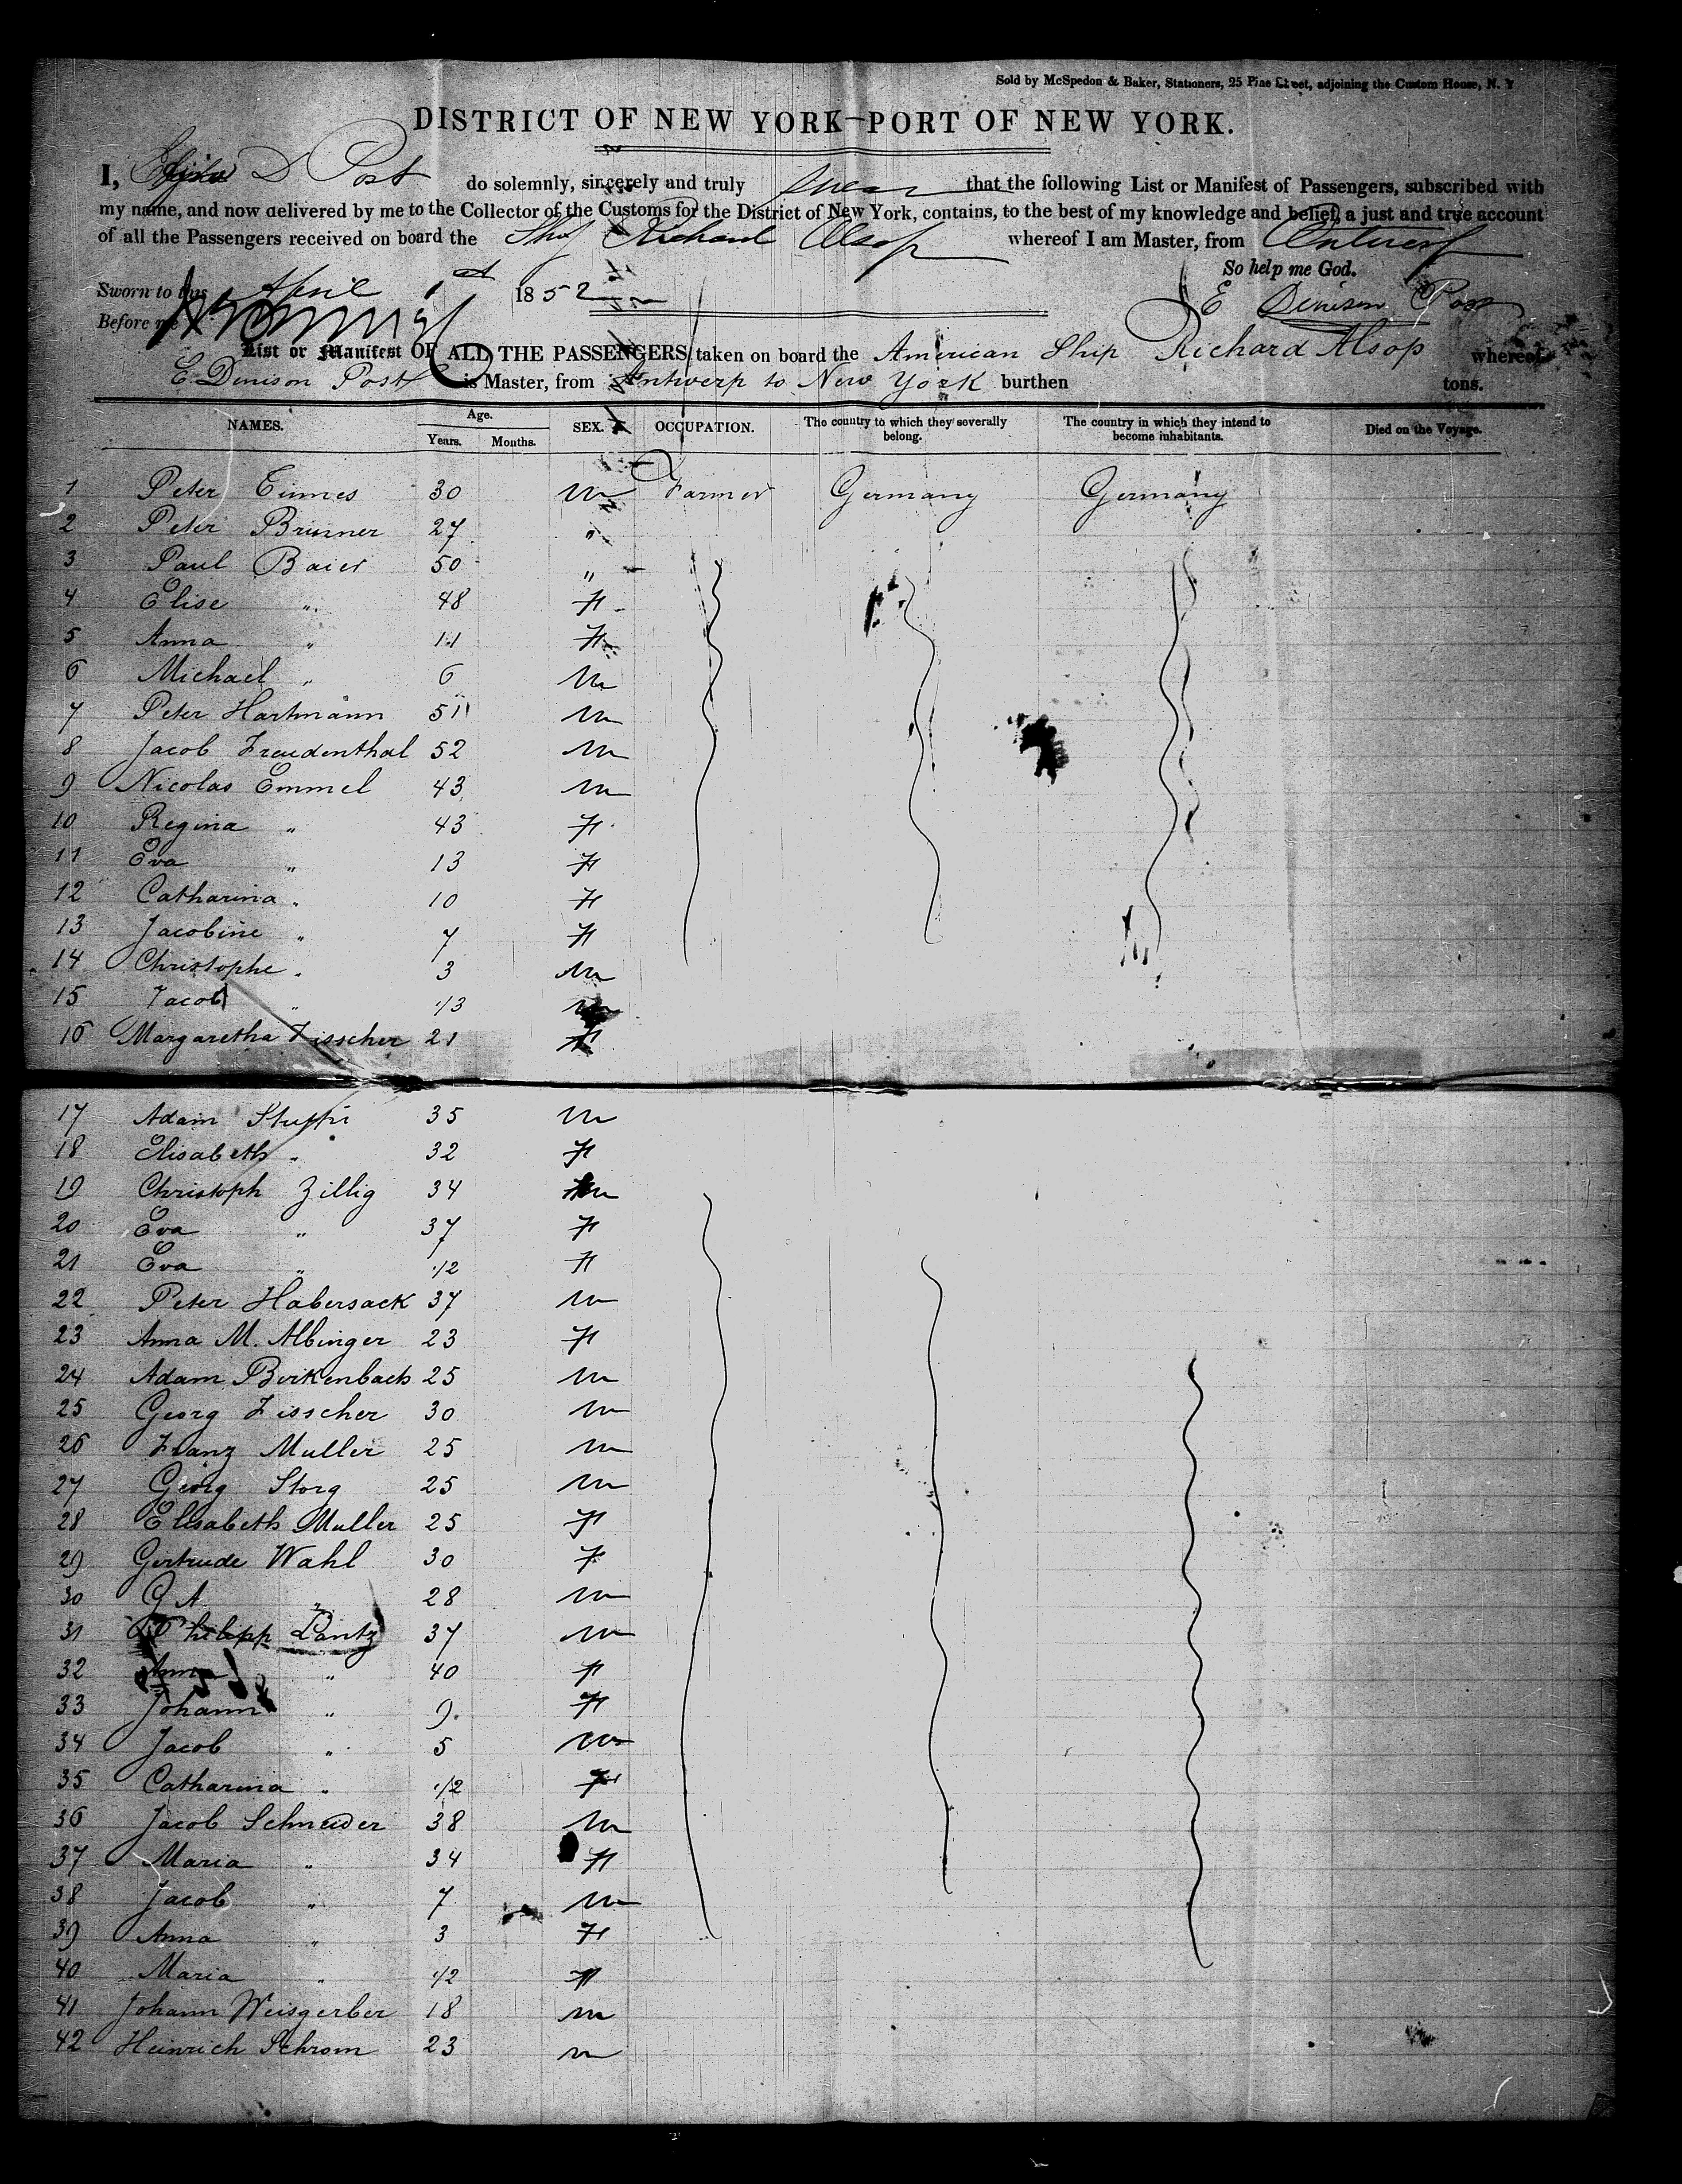 Sold by McSpedon & Baker, Stationers, 25 Pine Street, adjoining the Custom House, N. Y
DISTRICT OF NEW YORK—PORT OF NEW YORK.
I, D Post do solemnly, sincerely and truly swear that the following List or Manifest of Passengers, subscribed with
my name, and now delivered by me to the Collector of the Customs for the District of New York, contains, to the best of my knowledge and belief, a just and true account
of all the Passengers received on board the Ship Richard Alsop whereof I am Master, from Antwerp
So help me God.
Sworn to this April 1st 1852
E Denison Post
Before me
List or Manifest OF ALL THE PASSENGERS taken on board the American Ship Richard Alsop whereof
E. Denison Post is Master, from Antwerp to New York burthen tons.
NAMES. Age. SEX. OCCUPATION. The country to which they severally belong. The country in which they intend to become inhabitants. Died on the Voyage.
Years. Months.
1 Peter Einnes 30 m Farmer Germany Germany
2 Peter Brunner 27 "
3 Paul Baier 50 "
4 Elise " 48 F
5 Anna " 11 F
6 Michael " 6 m
7 Peter Hartmann 51 m
8 Jacob Freudenthal 52 m
9 Nicolas Emmel 43 m
10 Regina " 43 F
11 Eva " 13 F
12 Catharina " 10 F
13 Jacobine " 7 F
14 Christophe " 3 m
15 Jacob " 1/3 m
16 Margaretha Fisscher 21 F
17 Adam 35 m
18 Elisabeth " 32 F
19 Christoph Zillig 34 m
20 Eva " 37 F
21 Eva " 1/2 F
22 Peter Habersack 37 m
23 Anna M. Albinger 23 F
24 Adam Birkenbach 25 m
25 Georg Fisscher 30 m
26 Franz Muller 25 m
27 Georg Storg 25 m
28 Elisabeth Muller 25 F
29 Gertrude Wahl 30 F
30 G A " 28 m
31 Philipp Lantz 37 m
32 Anna " 40 F
33 Johann " 9 F
34 Jacob " 5 m
35 Catharina " 1/2 F
36 Jacob Schneider 38 m
37 Maria " 34 F
38 Jacob " 7 m
39 Anna " 3 F
40 Maria " 1/2 F
41 Johann Weisgerber 18 m
42 Heinrich Schrom 23 m